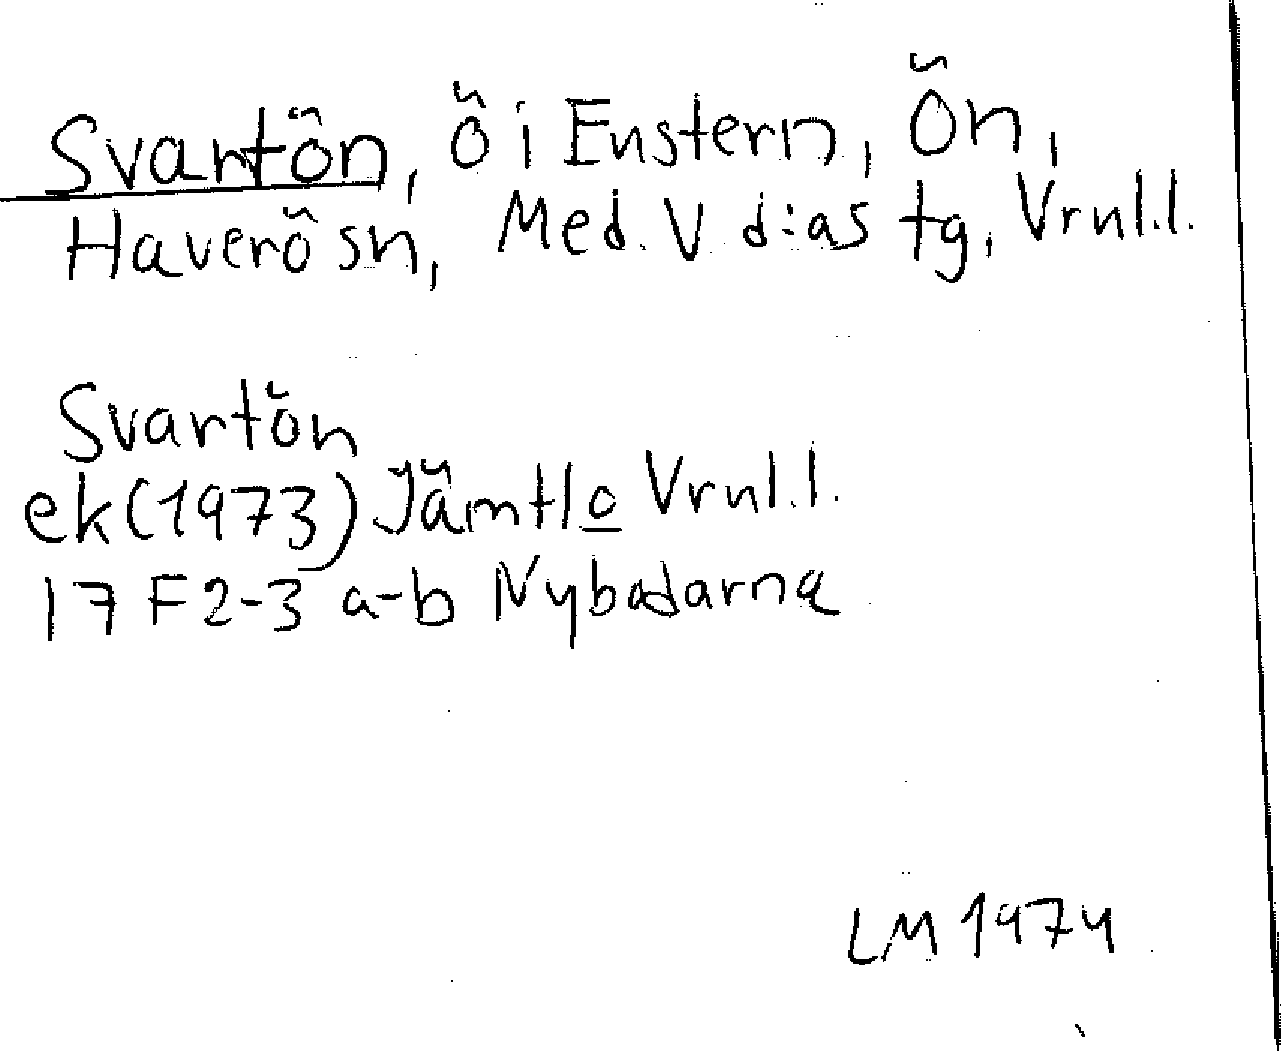 Svartön, ö i Enstern, Ön,
Haverö sn, Med. V d:as tg, Vrnl.l.
Svartön
ek(1973) Jämtl o Vrnl.l.
17 F 2-3 a-b Nybodarna
LM 1974